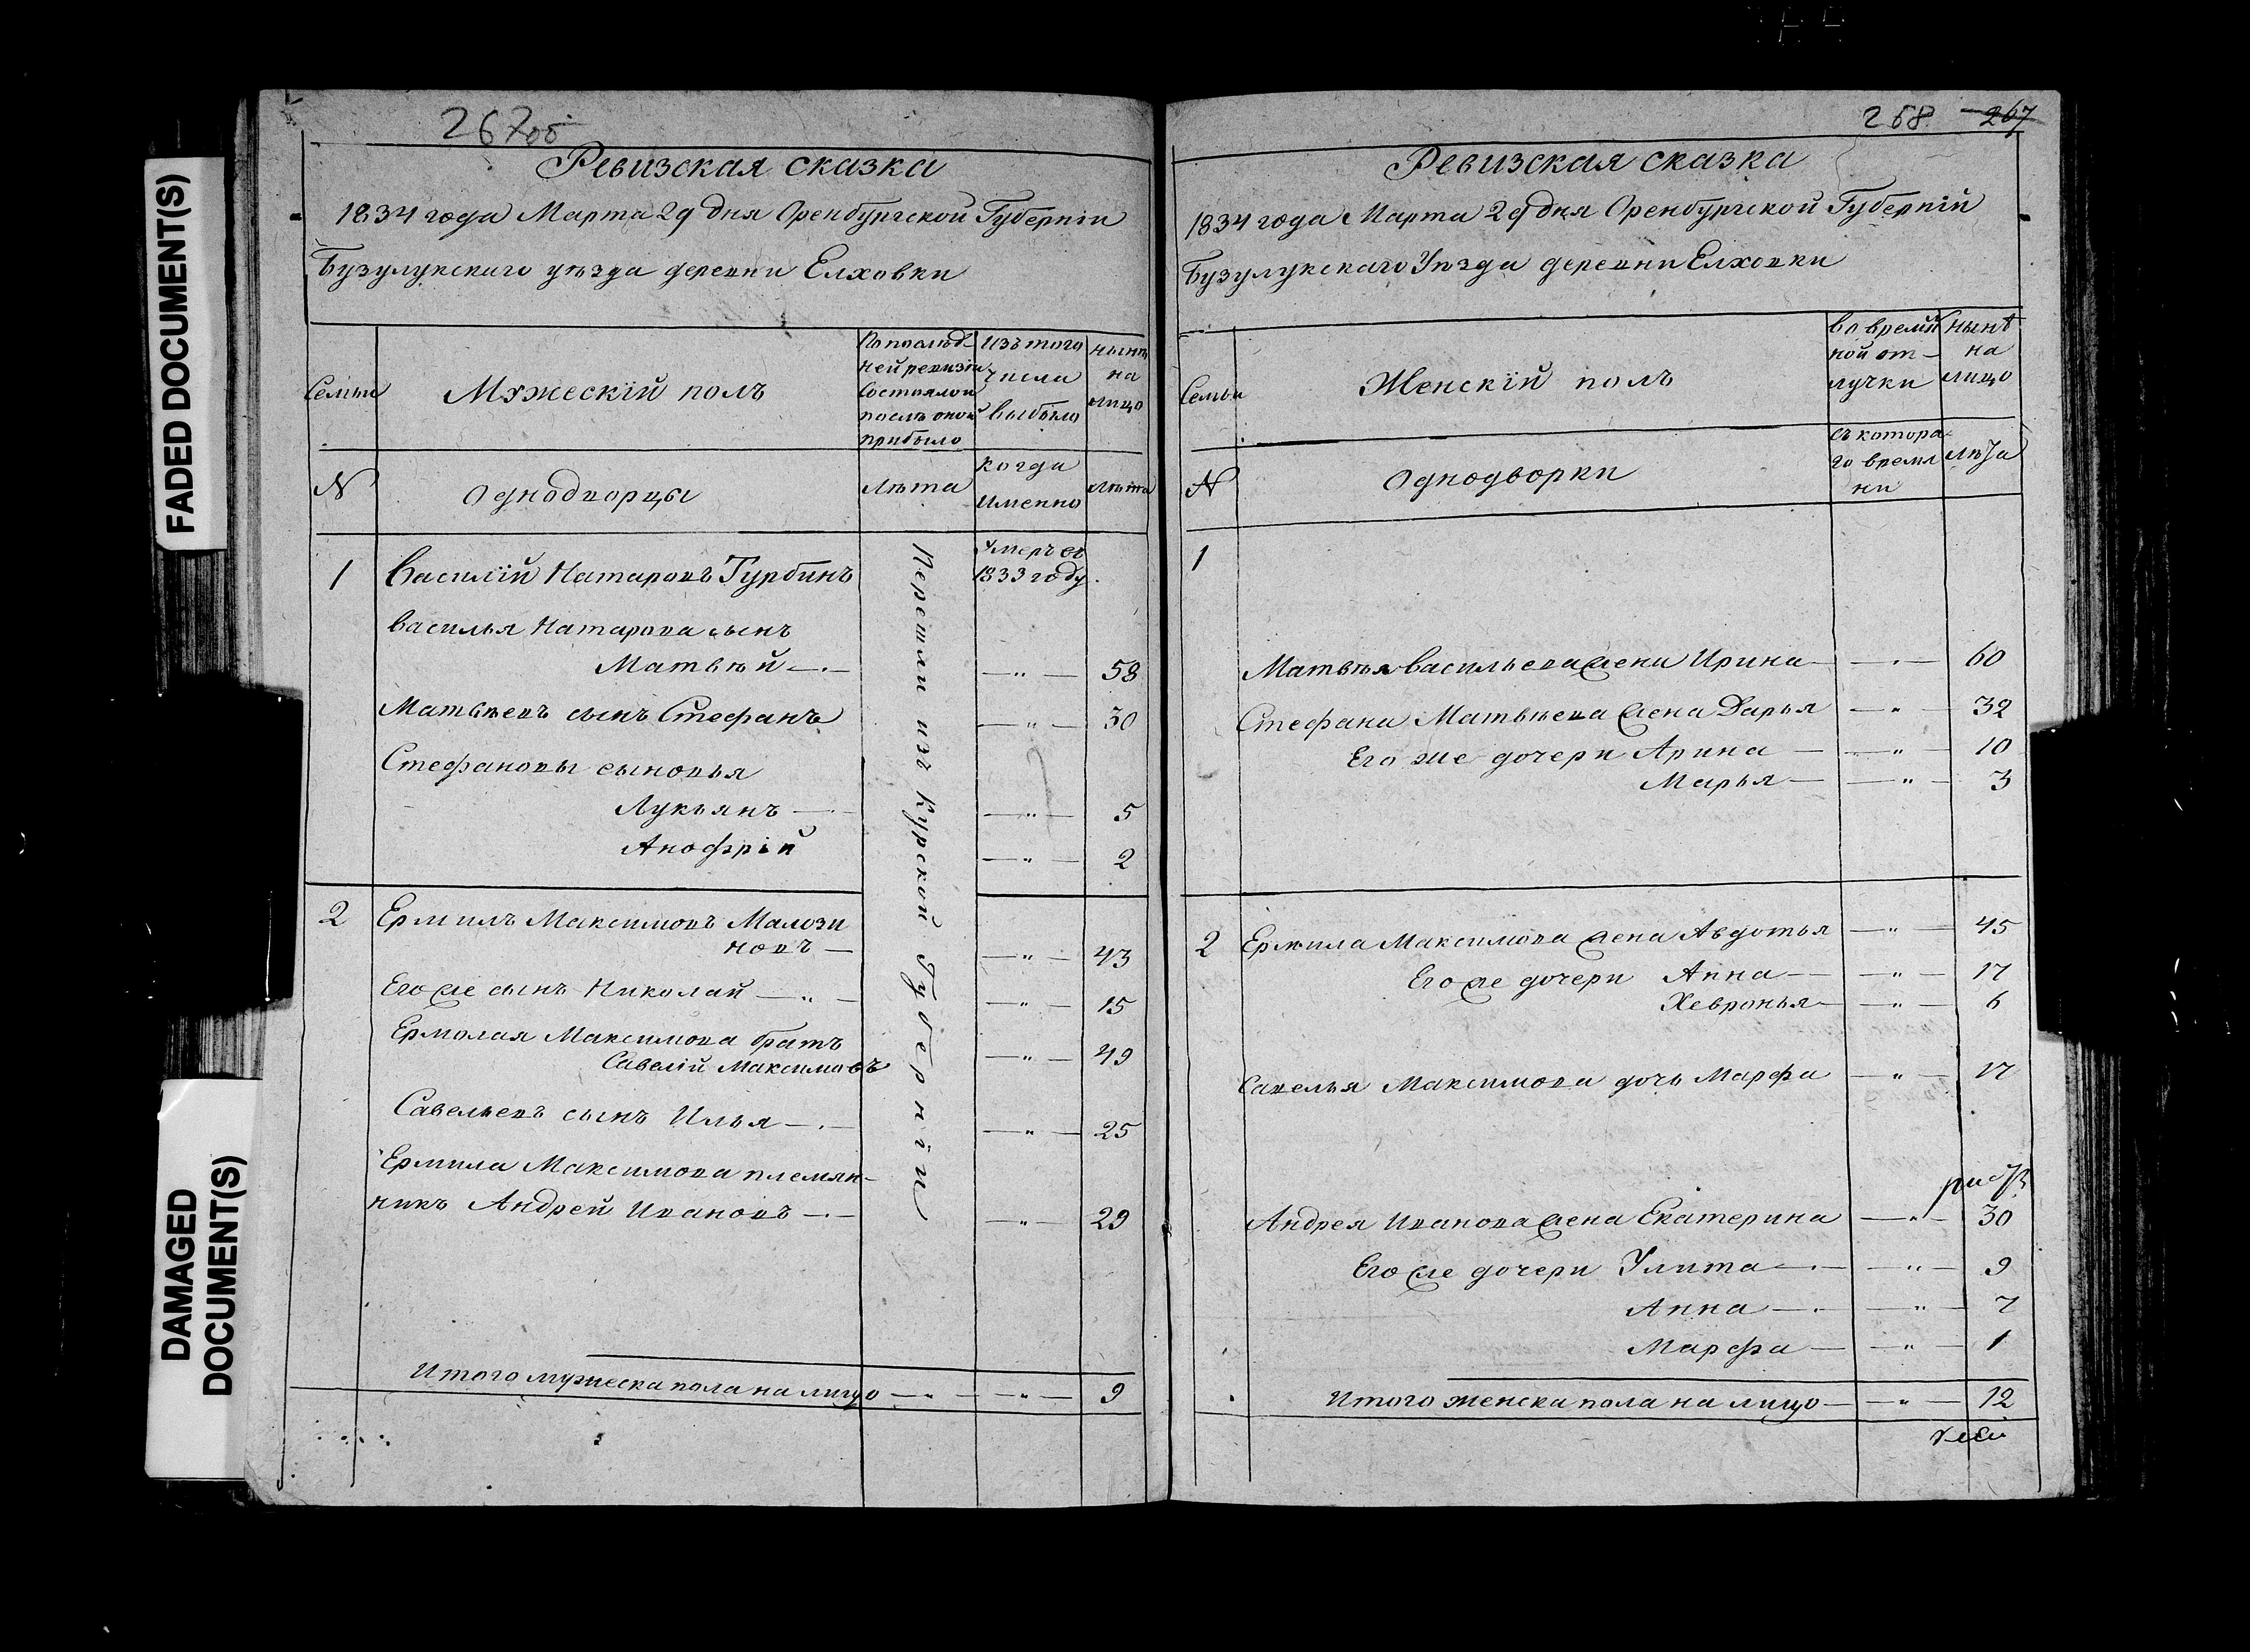 FADED DOCUMENT(S)
DAMAGED
DOCUMENT(S)
267об
Ревизская сказка
1834 года Марта 29 дня Оренбургской Губерніи
Бузулукскаго уѣзда деревни Елховки
Семьи
Мужескій полъ
По послѣд-
ней ревизіи
состояло и
послѣ оной
прибыло
Изъ того
числа
выбыло
нынѣ
на
лицо
N
Однодворцы
Лѣта
когда
именно
Лѣта
Перешли изъ Курской Губерніи
1
Василій Натаровъ Турбинъ
Умеръ въ
1833 году.
Василья Натарова сынъ
Матвѣй — 58
Матвѣевъ сынъ Стефанъ 30
Стефановы сыновья
Лукьянъ — 5
Анофрій 2
2
Ермилъ Максимовъ Малози
новъ — 43
Его же сынъ Николай — 15
Ермолая Максимова братъ
Савелій Максимовъ 49
Савельевъ сынъ Илья — 25
Ермила Максимова племян-
никъ Андрей Ивановъ — 29
Итого мужеска пола на лицо — 9
268 267
Ревизская сказка
1834 года Марта 29 дня Оренбургской Губерній
Бузулукскаго Уѣзда деревни Елховки
Семьи
Женскій полъ
Во времян
ной от-
лучки
нынѣ
на
лицо
N
Однодворки
съ котора-
го время
ни
лѣта
1
Матвѣя Васильева жена Ирина — 60
Стефана Матвѣева жена Дарья — 32
Его же дочери Арина — 10
Марья — 3
2
Ермила Максимова жена Авдотья — 45
Его же дочери Анна — 17
Хевронья — 6
Савелья Максимова дочь Марфа — 17
Андрея Иванова жена Екатерина — 30
Его же дочери Улита — 9
Анна — 7
Марфа — 1
Итого женска пола на лицо — 12